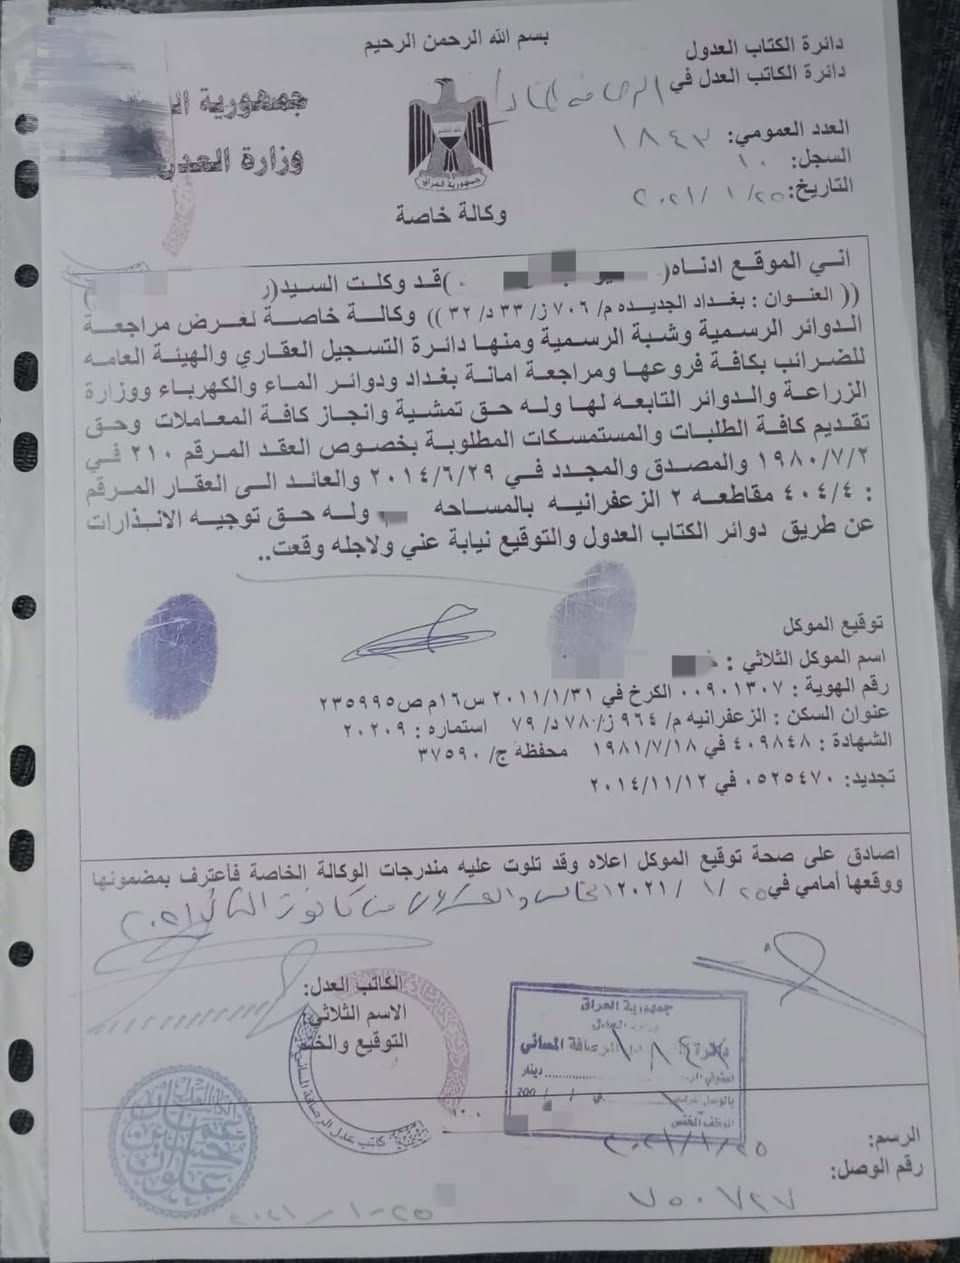 بسم الله الرحمن الرحيم
دائرة الكتاب العدول
دائرة الكاتب العدل في
جمهورية
وزارة العدل
العدد العمومي: ١٨٤٣
السجل: ١٠
التاريخ: ٢٠٢١/١/٢٥
جمهورية العراق
وكالة خاصة
اني الموقع ادناه( )قد وكلت السيد(
(( العنوان : بغداد الجديده م/ ٧٠٦ ز/ ٣٣ د/ ٣٢ )) وكالة خاصة لغرض مراجعة
الدوائر الرسمية وشبة الرسمية ومنها دائرة التسجيل العقاري والهيئة العامه
للضرائب بكافة فروعها ومراجعة امانة بغداد ودوائر الماء والكهرباء ووزارة
الزراعة والدوائر التابعه لها وله حق تمشية وانجاز كافة المعاملات وحق
تقديم كافة الطلبات والمستمسكات المطلوبة بخصوص العقد المرقم ٢١٠ في
١٩٨٠/٧/٢ والمصدق والمجدد في ٢٠١٤/٦/٢٩ والعائد الى العقار المرقم
: ٤٠٤/٤ مقاطعه ٢ الزعفرانيه بالمساحه وله حق توجيه الانذارات
عن طريق دوائر الكتاب العدول والتوقيع نيابة عني ولاجله وقعت..
توقيع الموكل
اسم الموكل الثلاثي :
رقم الهوية : ٠٠٩٠١٣٠٧ الكرخ في ٢٠١١/١/٣١ س١٦م ص٢٣٥٩٩٥
عنوان السكن : الزعفرانيه م/ ٩٦٤ ز/ ٧٨ د/ ٧٩ استماره : ٢٠٢٠٩
الشهادة : ٤٠٩٨٤٨ في ١٩٨١/٧/١٨ محفظة ج/ ٣٧٥٩٠
تجديد: ٠٥٢٥٤٧٠ في ٢٠١٤/١١/١٢
اصادق على صحة توقيع الموكل اعلاه وقد تلوت عليه مندرجات الوكالة الخاصة فأعترف بمضمونها
ووقعها أمامي في ٢٥ / ١ / ٢٠٢١ الخامس والعشرون من كانون الثاني ٢٠٢١
الكاتب العدل:
الاسم الثلاثي:
التوقيع والختم
كاتب عدل الرصافة
جمهورية العراق
الرصافة المسائي
دينار
الرسم:
٢٠٢١/١/٢٥
رقم الوصل:
٧٥٠٧٢٧
٢٠٢١ - ١ - ٢٥